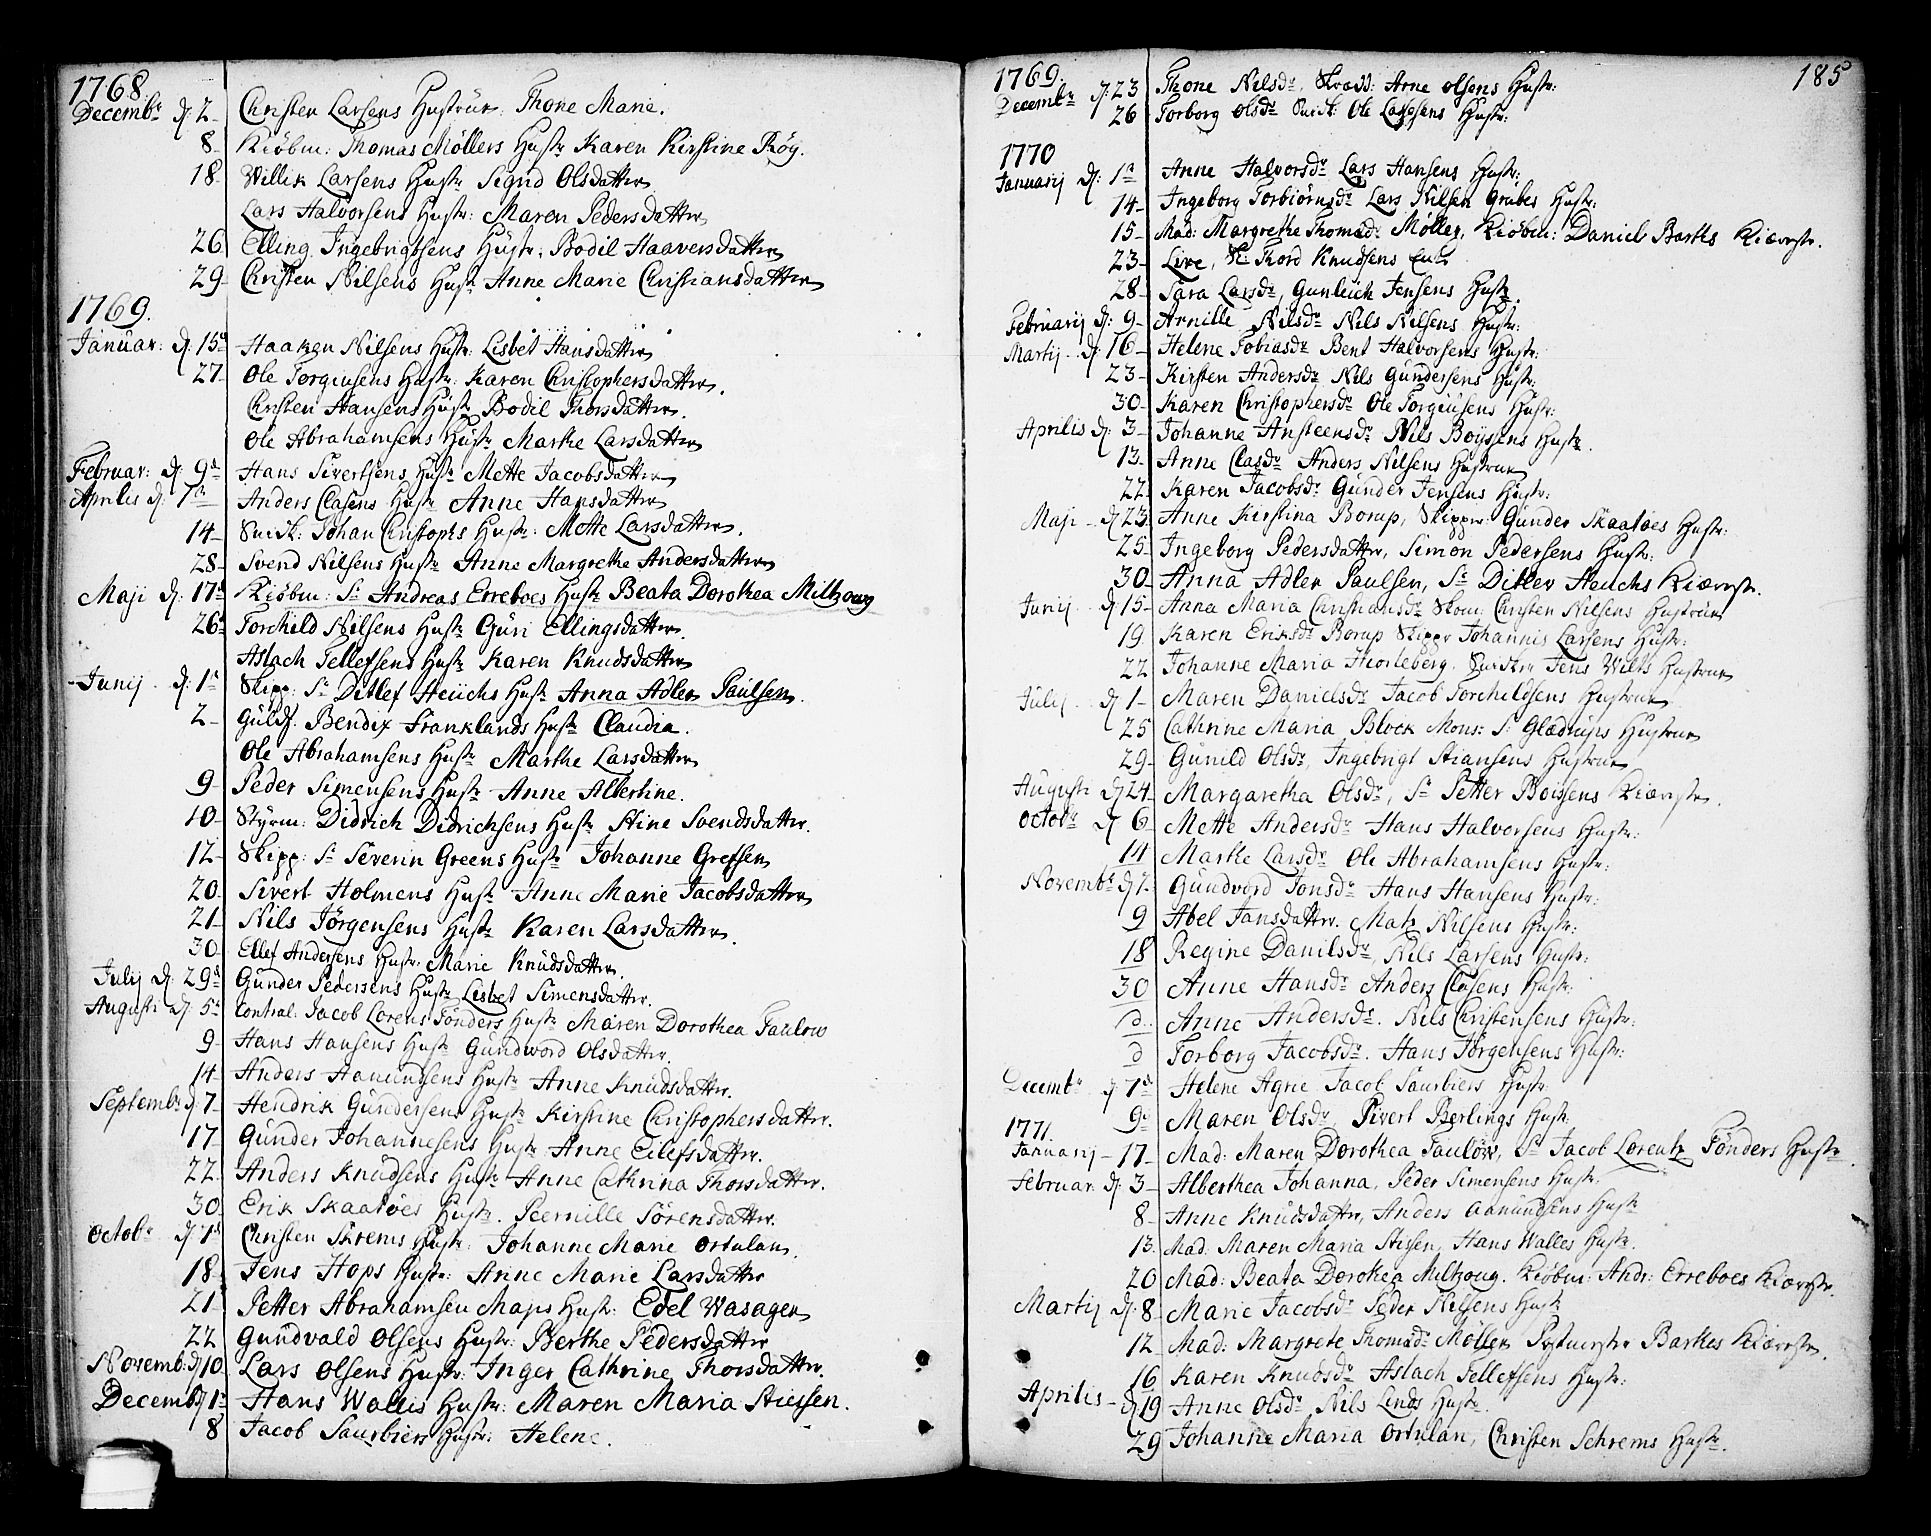 1768
Decembr d: 2 Christen Larsens Hustrue: Thone Marie.
8 Kiöbm: Thomas Möllers Hustr Karen Kirstine Röy.
18 Willik Larsens Hustr Segnd Olsdatter
Lars Halvorsens Hustr: Maren Pedersdatter
26 Elling Ingebrigtsens Hustr: Bodil Haaversdatter
29 Christen Nilsens Hustr Anne Marie Christiansdatter
1769.
Januar: d: 15 Haaken Nilsens Hustr: Lisbet Hansdatter
27 Ole Torgiusens Hustr: Karen Christophersdatter.
Christen Hansens Hustr Bodil Thorsdatter.
Ole Abrahamsens Hustr Marthe Larsdatter
Februar: d: 9 Hans Sivertsens Hustr Mette Jacobsdatter
Aprilis d: 7 Anders Clasens Hustr Anne Hansdatter
14 Snedk: Johan Christophs Hustr: Mette Larsdatter.
28 Svend Nilsens Hustr Anne Margrethe Andersdatter
Maji d: 17 Kiöbm: Sr Andreas Erreboes Hustr Beata Dorothea Miltzoug
26 Torchild Nilsens Hustr Guri Ellingsdatter.
Aslach Tellefsens Hustr Karen Knudsdatter
Junij d: 1 Skipp: Sr Ditlef Heuchs Hustr Anna Adler Paulsen.
2 Guldf. Bendix Franklands Hustr Claudia.
Ole Abrahamsens Hustr Marthe Larsdatter
9 Peder Simensens Hustr Anne Albertine.
10 Styrm: Didrich Didrichsens Hustr Stine Svendsdatter.
12 Skipp: Sr Severin Greens Hustr Johanne Grefsen
20 Sivert Holmens Hustr Anne Marie Jacobsdatter
21 Nils Jörgensens Hustr Karen Larsdatter.
30 Ellef Andersens Hustr: Marie Knudsdatter.
Julij d: 29 Gunder Pedersens Hustr Lisbet Simensdatter.
Augusti d: 5 Control: Jacob Lorens Tönders Hustr Maren Dorothea Taulow
9 Hans Hansens Hustr Gundword Olsdatter.
14 Anders Aanundsens Hustr Anne Knudsdatter.
Septembr d: 7 Hendrik Gundersens Hustr Kirstine Christophersdatter.
17 Gunder Johannesens Hustr Anne Eilefsdatter.
22 Anders Knudsens Hustr Anne Cathrina Thorsdatter.
30 Erik Skaatöes Hustr. Pernille Sörensdatter.
Octobr d: 7 Christen Skrems Hustr: Johanne Marie Ortulan.
18 Jens Hops Hustr: Anne Marie Larsdatter
21 Petter Abrahamsen Maps Hustr: Edel Wasager
22 Gundvald Olsens Hustr: Berthe Pedersdatter
Novemb: d 10 Lars Olsens Hustr: Inger Cathrine Thorsdatter.
Decemb d 1 Hans Wallis Hustr: Maren Maria Stiesen.
8 Jacob Saurbiers Hustr: Helene.
185
1769.
Decembr d: 23 Thone Nilsdr, Skrædd: Arne Olsens Hustr:
26 Torborg Olsdr Snedk: Ole Larsens Hustr:
1770
Januarij d: 1 Anne Halvorsdr Lars Hansens Hustr:
14 Ingeborg Torbiörnsdr Lars Nilsen Grubes Hustr:
15 Mad: Margrethe Thomadr Möller, Kiöbm: Daniel Barths Kiærestr.
23 Live, Sr Thord Knudsens Enke
28 Sara Larsdr, Gunleich Jensens Hustr.
Februarij d: 9 Arnille Nilsdr Nils Nilsens Hustr:
Martij d: 16 Helene Tobiasdr Bent Halvorsens Hustr:
23 Kirsten Andersdr Nils Gundersens Hustr:
30 Karen Christophersdr Ole Torgiusens Hustr:
Aprilis d: 3 Johanne Ansteensdr Nils Boysens Hustr.
13 Anne Clasdr Anders Nilsens Hustrue
22 Karen Jacobsdr Gunder Jensens Hustr:
Maji d 23 Anne Kirstina Borup, Skippr: Gunder Skaatöes Hustr:
25 Ingeborg Pedersdatter, Simon Pedersens Hustr:
30 Anna Adler Paulsen, Sr Ditlev Heuchs Kiærestr.
Junij d 15 Anna Maria Christiansdr Skom: Christen Nilsens Hustrue
19 Karen Eriksdr Borup Skippr Johannis Larsens Hustr:
22 Johanne Maria Hiorteberg. Snedkr Jens Wilks Hustrue
Julij d 1 Maren Danielsdr Jacob Torchildsens Hustrue
25 Cathrine Maria Block Mons: Sr Glædrups Hustrue
29 Gunild Olsdr, Ingebrigt Stiansens Hustrue
Augusti d 24 Margaretha Olsdr, Sr Petter Boisens Kiærestr.
Octobr d 6 Mette Andersdr Hans Halvorsens Hustr:
14 Marthe Larsdr Ole Abrahamsens Hustr:
Novembr d 2 Gundvord Jonsdr Hans Hansens Hustr:
9 Abel Jansdatter. Matz Nilsens Hustr:
18 Regine Danilsdr Nils Larsens Hustr:
30 Anne Hansdr Anders Clasens Hustr:
d. Anne Andersdr. Nils Christensens Hustr:
d Torborg Jacobsdr. Hans Jörgensens Hustr:
Decembr d 7 Helene Agne Jacob Saurbiers Hustr
9 Maren Olsdr Sivert Berlings Hustr
1771.
Januarij 17 Mad: Maren Dorothea Taulöw, Sr Jacob Lorentz Tönders Hustr.
Februar d 3 Alberthea Johanna, Peder Simensens Hustr:
8 Anne Knudsdatter, Anders Aanundsens Hustr
13 Mad: Maren Maria Stisen, Hans Walles Hustr.
20 Mad: Beata Dorothea Meltzoug. Kiöbm: Andr: Erreboes Kiærestr.
Martij d: 8 Marie Jacobsdr Peder Nilsens Hustr
12 Mad: Margrete Thomadr Möller Postmestr Barthes Kiærestr.
16 Karen Knudsdr Aslach Tellefsens Hustr:
Aprilis d 19 Anne Olsdr Nils Linds Hustr.
29 Johanne Maria Ortulan, Christen Schrems Hustr.